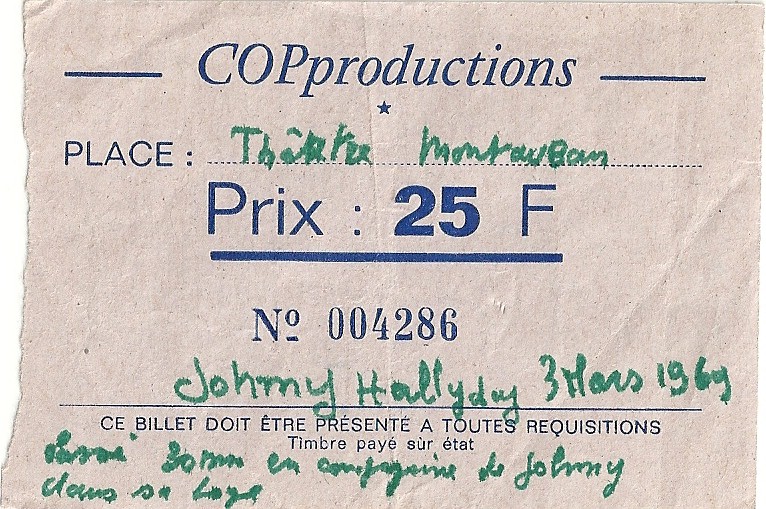 COPproductions
PLACE : Théâtre Montauban
Prix : 25 F
Nº 004286
Johnny Hallyday 3 Mars 1969
CE BILLET DOIT ÊTRE PRÉSENTÉ A TOUTES REQUISITIONS
Timbre payé sùr état
Passé 30mn en compagnie de Johnny
dans sa loge